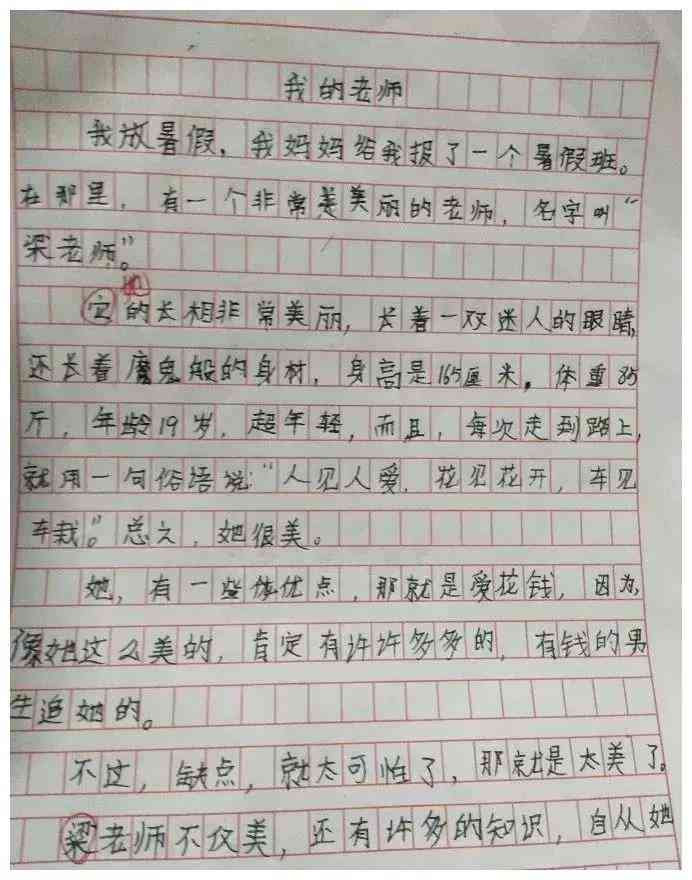 我的老师
我放暑假，我妈妈给我报了一个暑假班。
在那里，有一个非常美丽的老师，名字叫“
梁老师”。
她
它的长相非常美丽，长着一双迷人的眼睛，
还长着魔鬼般的身材，身高是165厘米，体重85
斤，年龄19岁，超年轻，而且，每次走到路上，
就用一句俗语说：“人见人爱，花见花开，车见
车栽。”总之，她很美。
她，有一些优点，那就是爱花钱，因为，
像她这么美的，肯定有许许多多的，有钱的男
生追她的。
不过，缺点，就太可怕了，那就是太美了。
梁老师不仅美，还有许多的知识，自从她